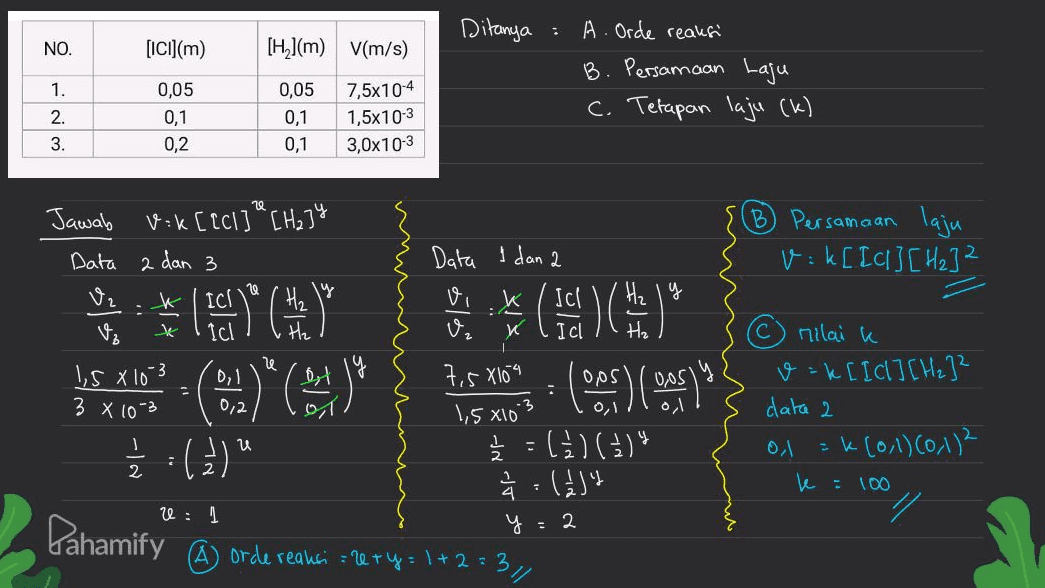 NO. [ICI](m) [H₂](m) V(m/s)
1. 0,05 0,05 7,5x10-4
2. 0,1 0,1 1,5x10-3
3. 0,2 0,1 3,0x10-3
Ditanya : A. Orde reaksi
B. Persamaan Laju
C. Tetapan laju (k)
Jawab v = k [ICl]^x [H₂]^y
Data 2 dan 3
V₂/V₃ = k/k (ICl/ICl)^x (H₂/H₂)^y
1,5 x 10⁻³ / 3 x 10⁻³ = (0,1/0,2)^x (0,1/0,1)^y
1/2 = (1/2)^x
x = 1
Data 1 dan 2
V₁/V₂ = k/k (ICl/ICl) (H₂/H₂)^y
7,5 x10⁻⁴ / 1,5 x10⁻³ = (0,05/0,1) (0,05/0,1)^y
1/2 = (1/2) (1/2)^y
1/4 = (1/2)^y
y = 2
(A) Orde reaksi = x + y = 1 + 2 = 3 //
(B) Persamaan laju
v = k [ICl] [H₂]²
(C) nilai k
v = k [ICl] [H₂]²
data 2
0,1 = k (0,1) (0,1)²
k = 100 //
Pahamify